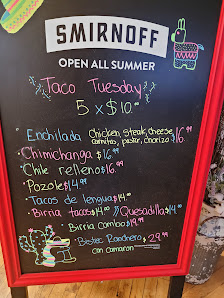 SMIRNOFF
OPEN ALL SUMMER
Taco Tuesday
5 x $10.00
Enchilada Chicken, Steak, Cheese
carnitas, pastor, chorizo $16.99
Chimichanga $16.99
Chile relleno $16.99
Pozole $14.99
Tacos de lengua $14.00
Birria tacos $14.00 // Quesadilla $14.00
Birria combo $19.99
Bistec Ranchero $29.99
con camaron